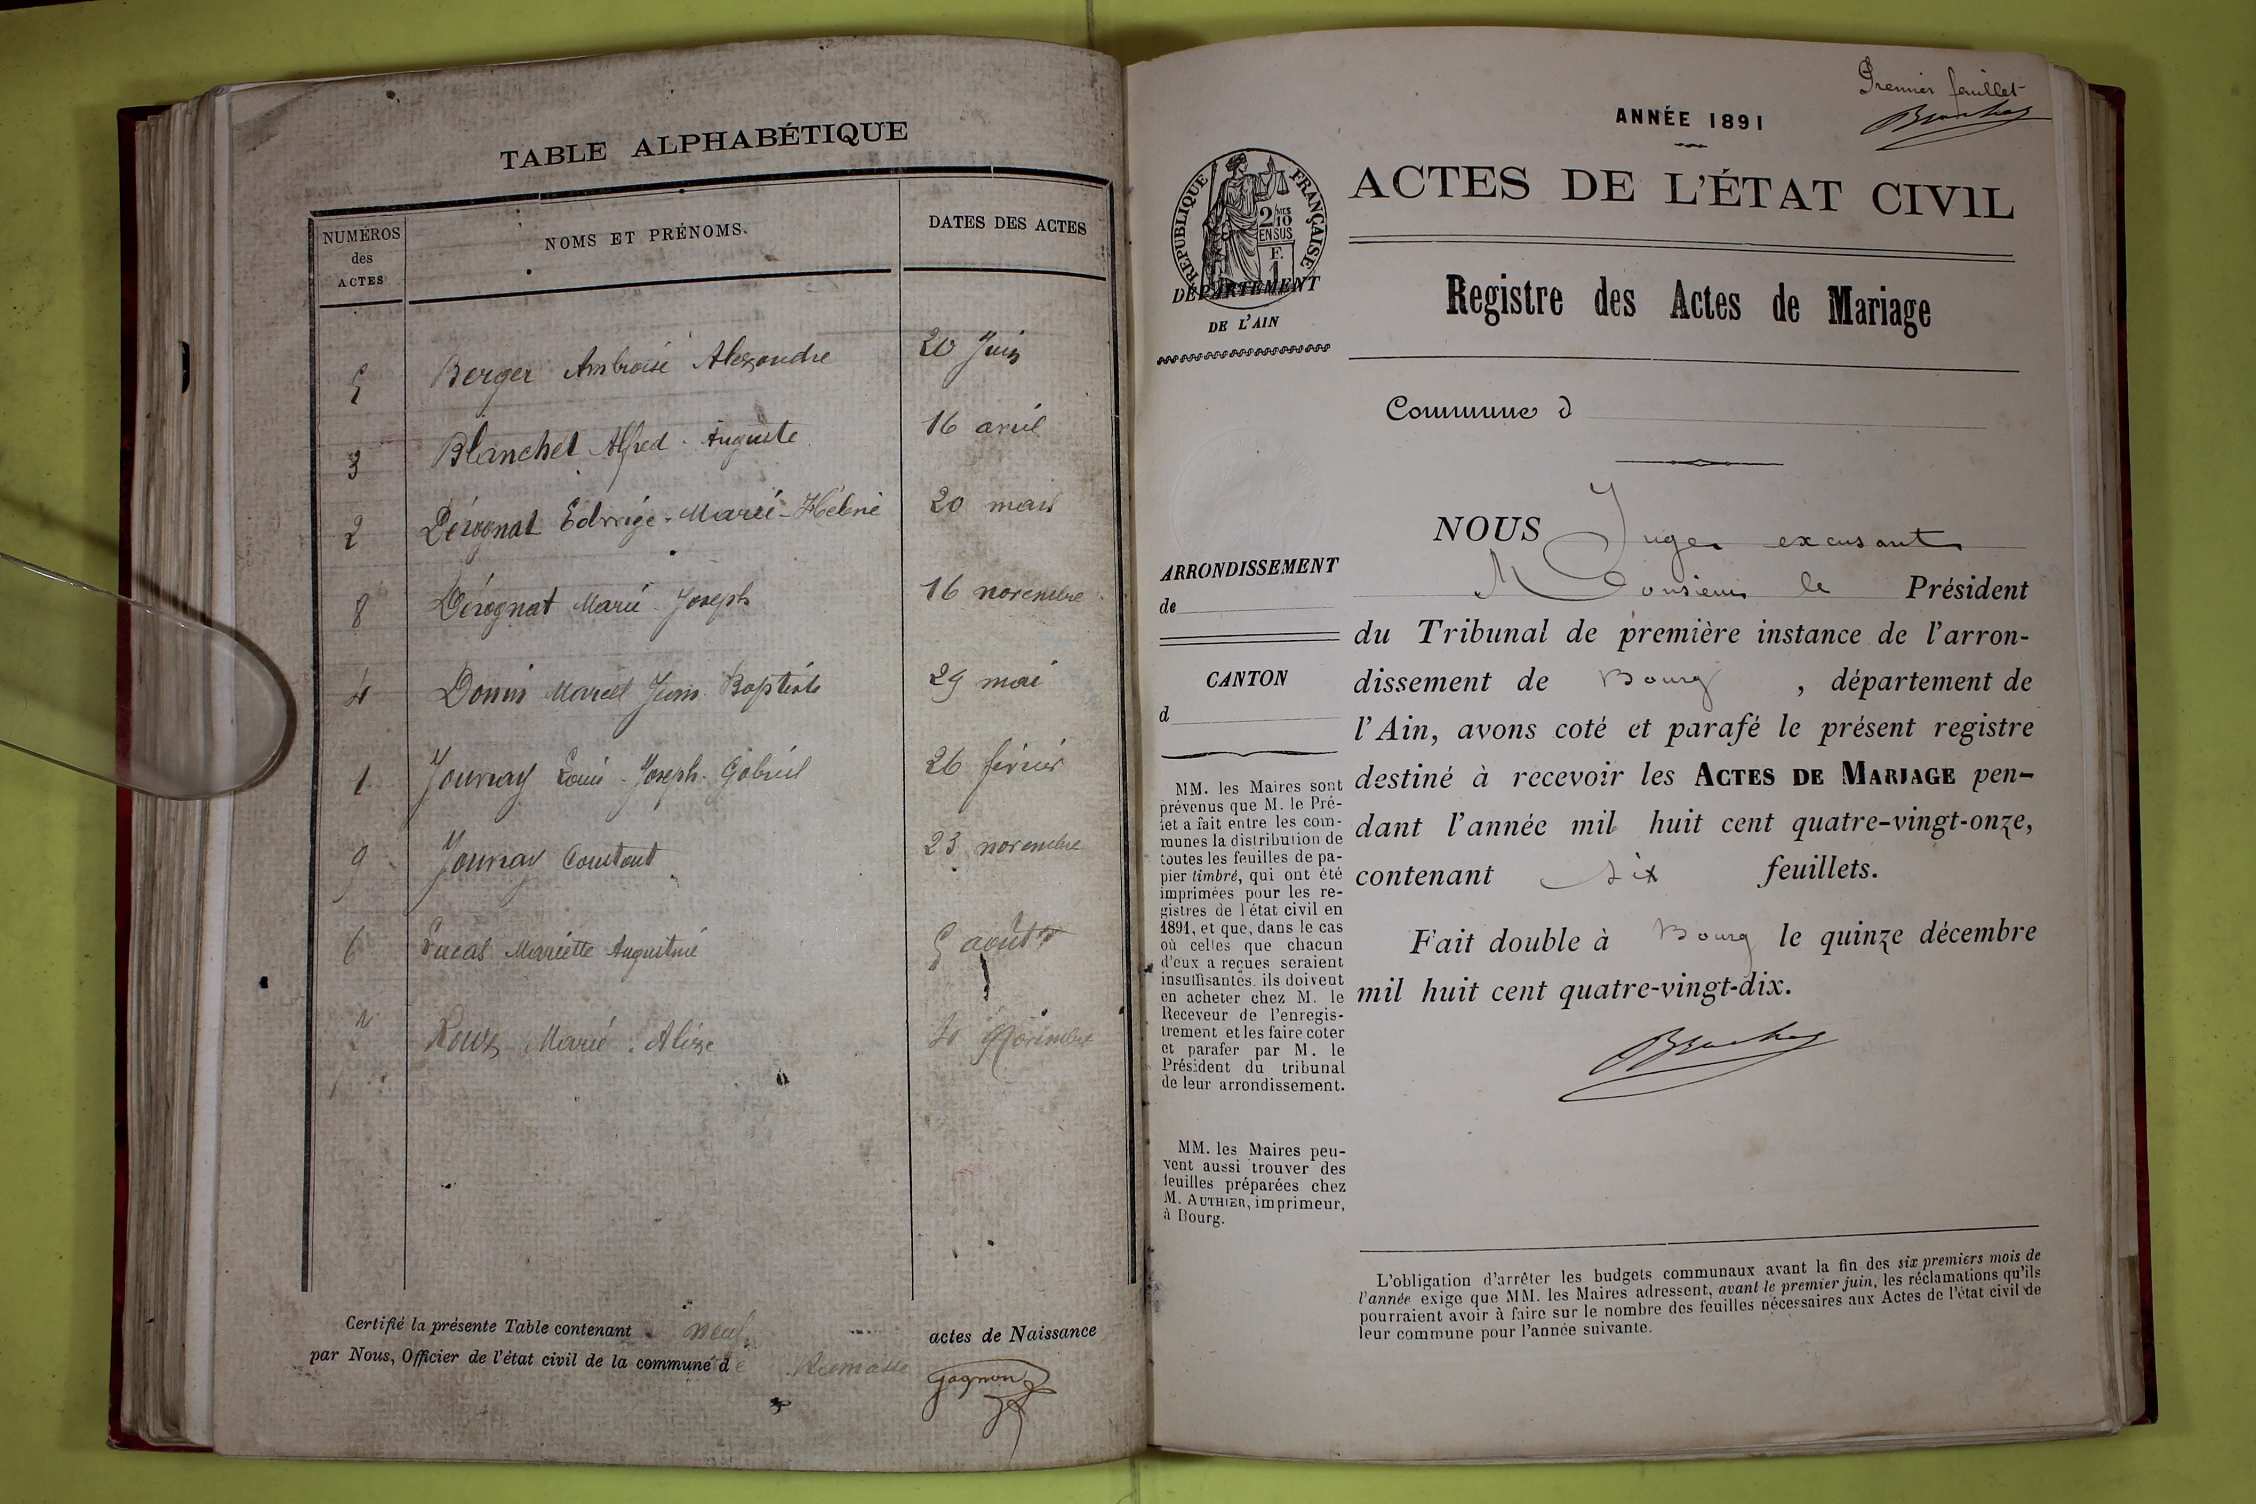 TABLE ALPHABÉTIQUE
NUMÉROS des ACTES
NOMS ET PRÉNOMS.
DATES DES ACTES
5 Berger Ambroise Alexandre 20 Juin
3 Blanchet Alfred - Auguste 16 avril
2 Dérognat Edwige - Marie - Hélène 20 mars
8 Dérognat Marie - Joseph 16 novembre
4 Donin Marcel Jean Baptiste 29 mai
1 Journay Louis - Joseph - Gabriel 26 février
9 Journay Constant 23 novembre
6 Lucas Mariette Augustine 5 août
7 Roux Marie - Alize novembre
Certifié la présente Table contenant neuf actes de Naissance
par Nous, Officier de l'état civil de la commune de
Gagnon
Premier feuillet
ANNÉE 1891
ACTES DE L'ÉTAT CIVIL
RÉPUBLIQUE FRANÇAISE
2/10 MES
EN SUS
F. 1
DÉPARTEMENT
DE L'AIN
Registre des Actes de Mariage
Commune d
ARRONDISSEMENT
de
CANTON
d
MM. les Maires sont
prévenus que M. le Pré-
fet a fait entre les com-
munes la distribution de
toutes les feuilles de pa-
pier timbré, qui ont été
imprimées pour les re-
gistres de l'état civil en
1891, et que, dans le cas
où celles que chacun
d'eux a reçues seraient
insuffisantes, ils doivent
en acheter chez M. le
Receveur de l'enregis-
trement et les faire coter
et parafer par M. le
Président du tribunal
de leur arrondissement.
MM. les Maires peu-
vent aussi trouver des
feuilles préparées chez
M. AUTHIER, imprimeur,
à Bourg.
NOUS Juge excusant
Monsieur le Président
du Tribunal de première instance de l'arron-
dissement de Bourg, département de
l'Ain, avons coté et parafé le présent registre
destiné à recevoir les ACTES DE MARIAGE pen-
dant l'année mil huit cent quatre-vingt-onze,
contenant six feuillets.
Fait double à Bourg le quinze décembre
mil huit cent quatre-vingt-dix.
L'obligation d'arrêter les budgets communaux avant la fin des six premiers mois de
l'année exige que MM. les Maires adressent, avant le premier juin, les réclamations qu'ils
pourraient avoir à faire sur le nombre des feuilles nécessaires aux Actes de l'état civil de
leur commune pour l'année suivante.